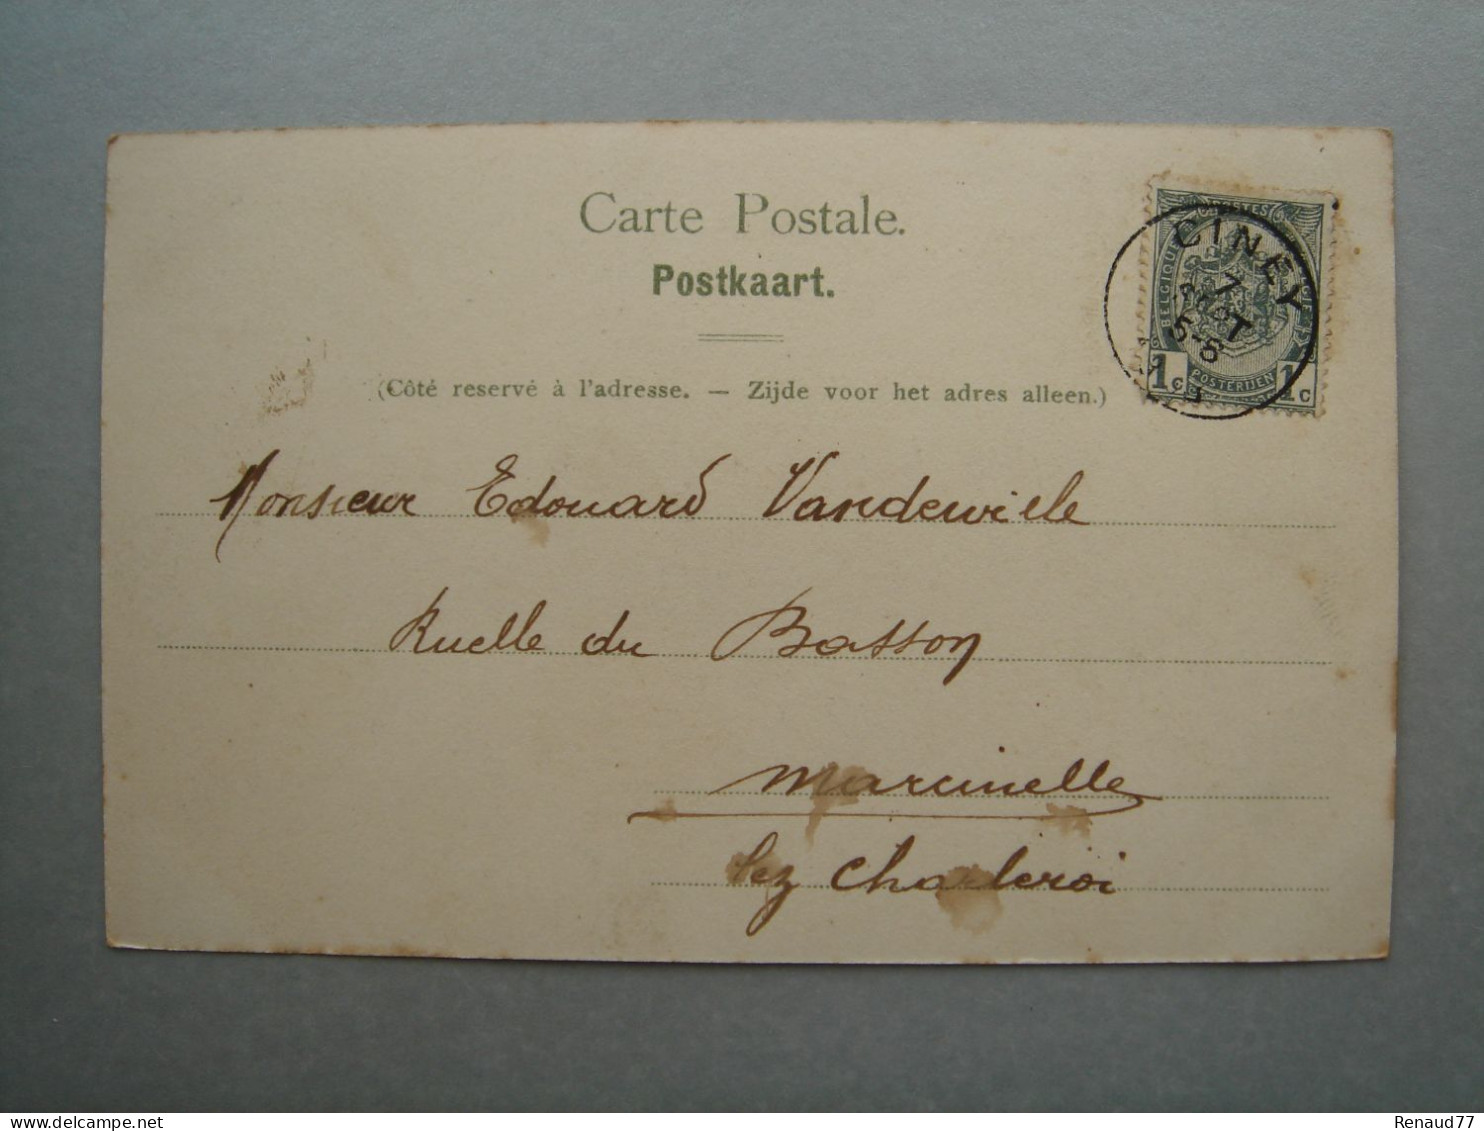 Carte Postale.
Postkaart.
(Côté reservé à l'adresse. — Zijde voor het adres alleen.)
CINEY
7
5-6
BELGIQUE
POSTERIJEN
1c 1c
Monsieur Edouard Vandewiele
Ruelle du Basson
Marcinelle
lez Charleroi
Renaud77